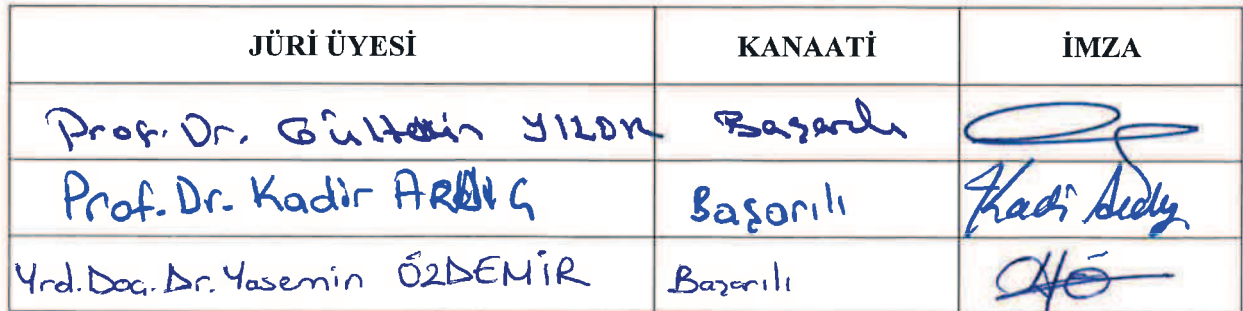 JÜRİ ÜYESİ KANAATİ İMZA
Prof. Dr. Gültekin YILDIZ Başarılı
Prof. Dr. Kadir ARDIÇ Başarılı
Yrd. Doç. Dr. Yasemin ÖZDEMİR Başarılı